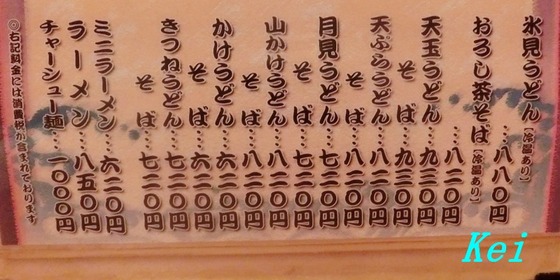 氷見うどん(冷温あり)
八八〇円
おろし茶そば(冷温あり)
…八二〇円
天玉うどん…九三〇円
そば…九三〇円
天ぷらうどん…八二〇円
そば…八二〇円
月見うどん…七二〇円
そば…七二〇円
山かけうどん…八二〇円
そば…八二〇円
かけうどん…六二〇円
そば…六二〇円
きつねうどん…七二〇円
そば…七二〇円
ミニラーメン 六二〇円
ラーメン…八五〇円
チャーシュー麺 一〇〇〇円
◎右記料金には消費税が含まれております
Kei